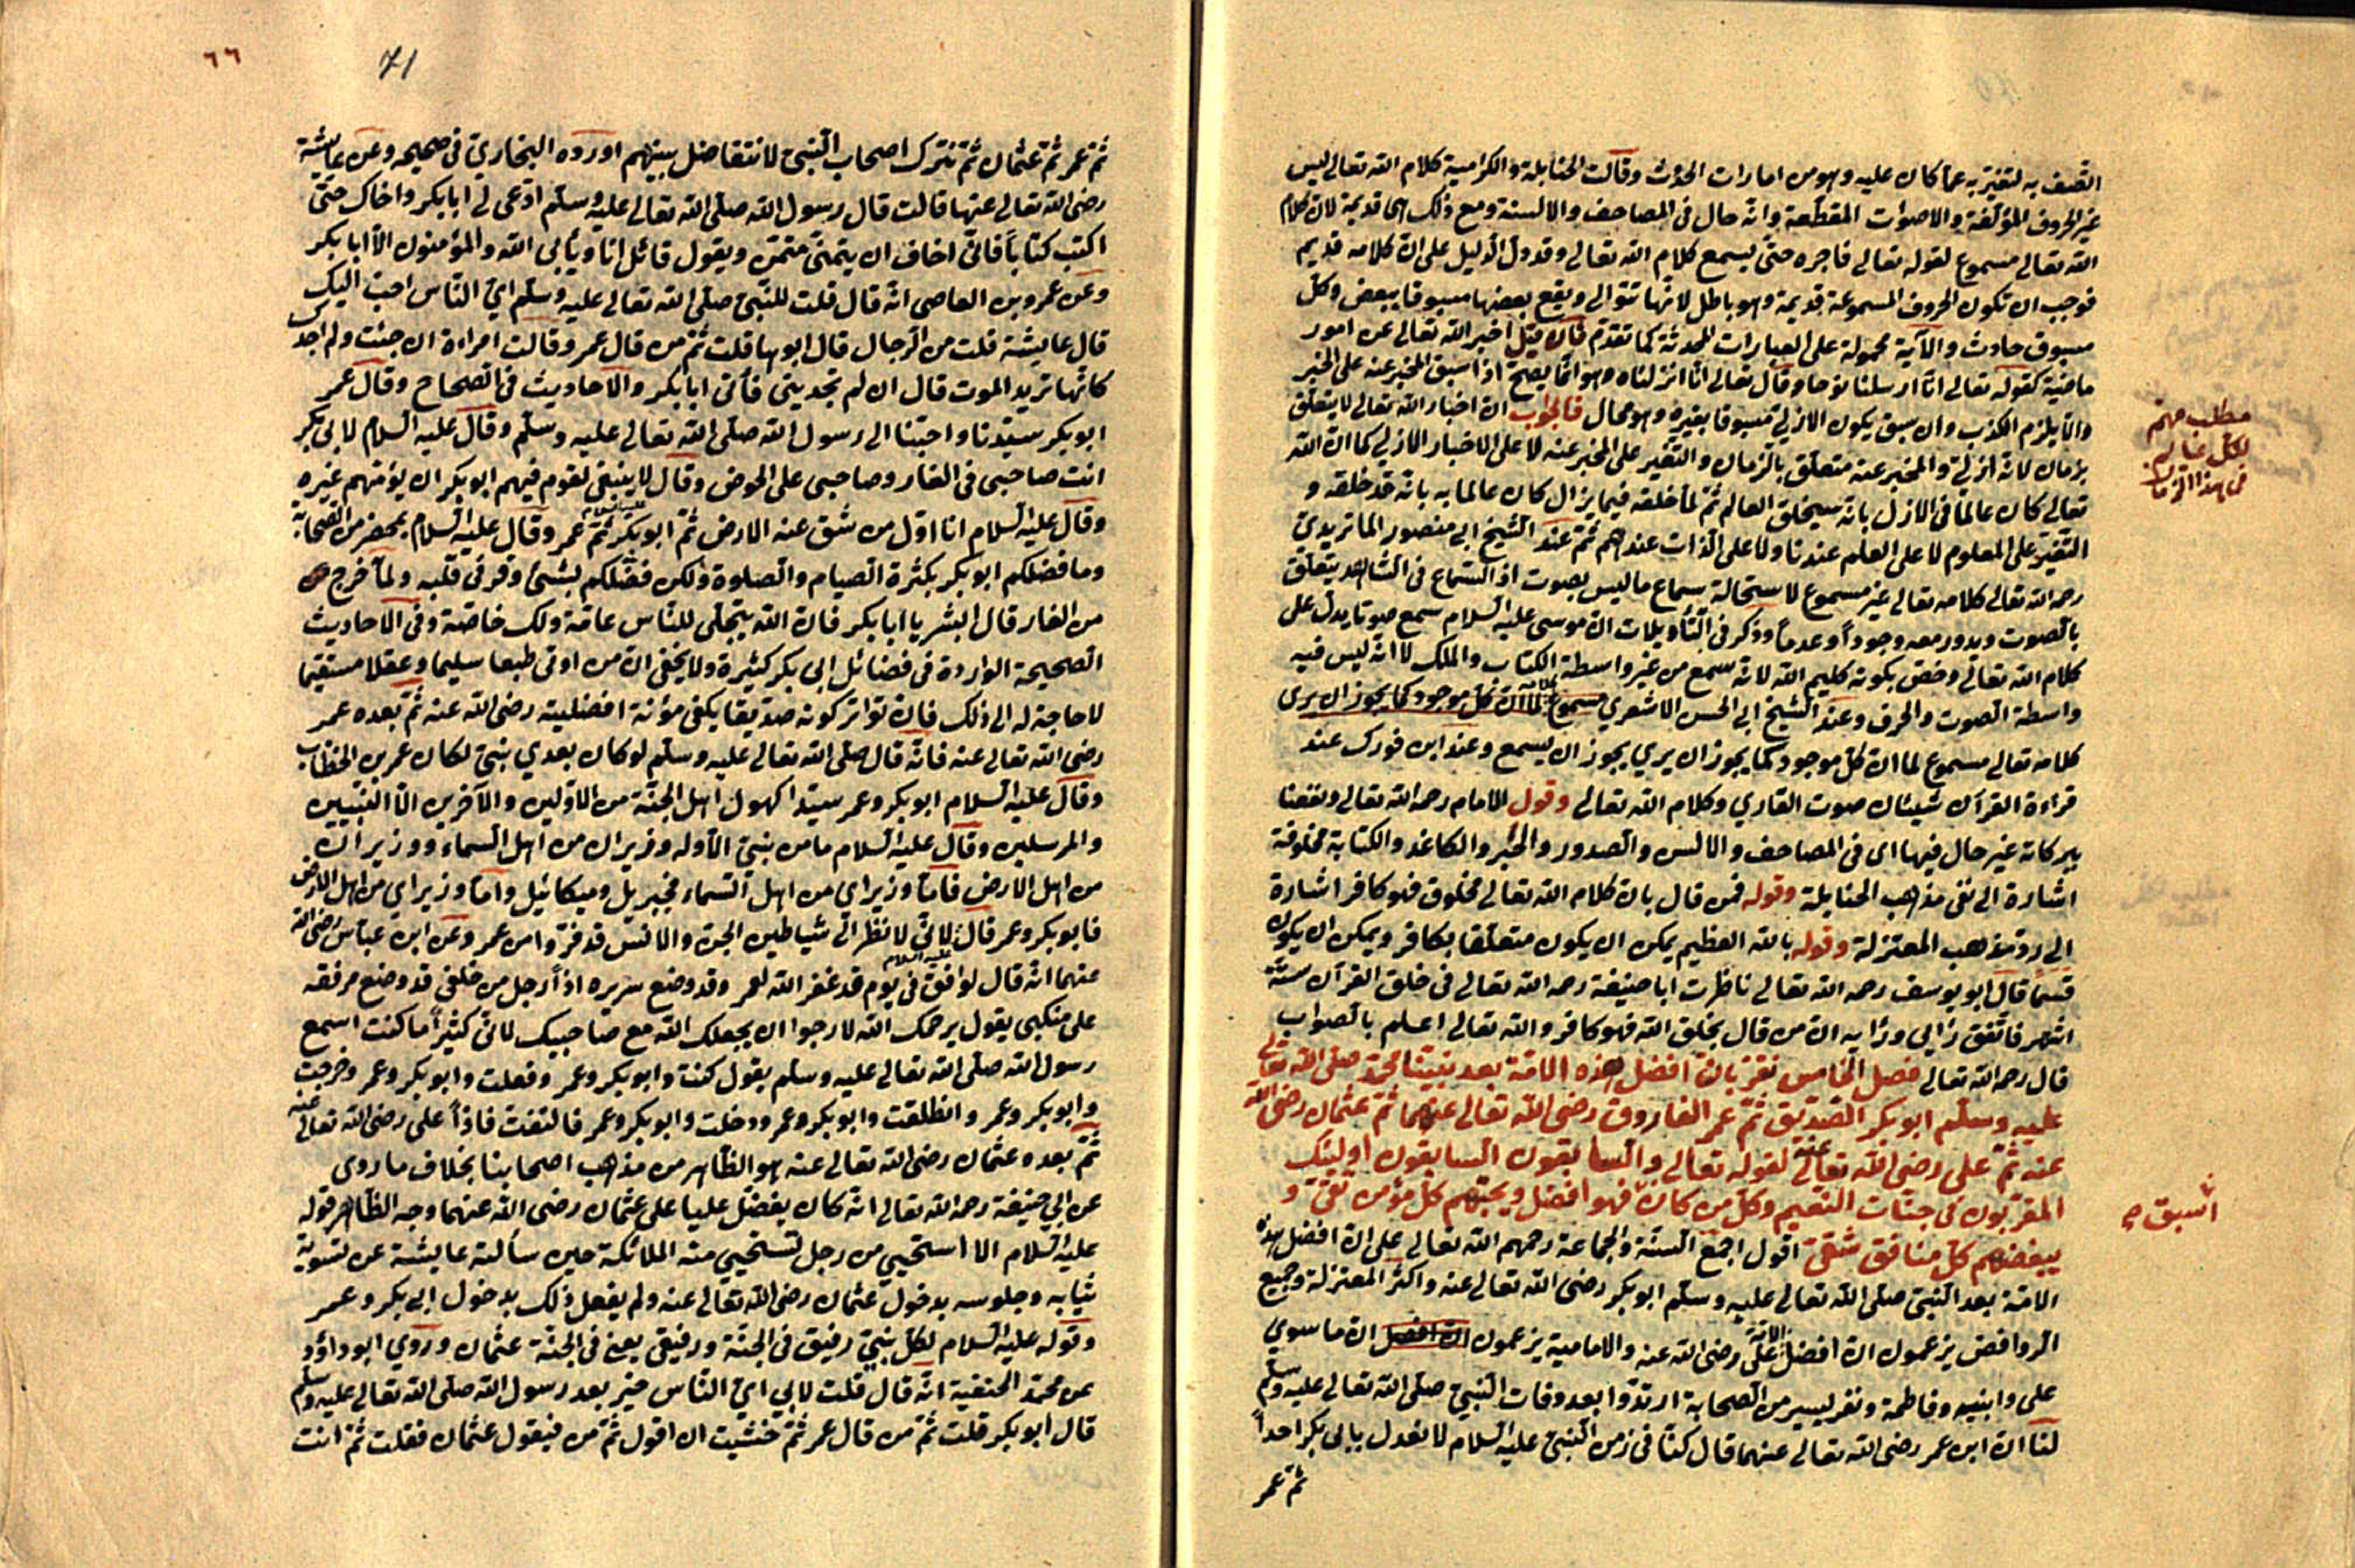 اتصف به لتغير به عما كان عليه وهو من امارات الحدث وقالت الحنابلة والكرامية كلام الله تعالى ليس
غير الحروف المؤلفة والاصوات المقطعة وانه حال في المصاحف والالسنة ومع ذلك انها قديمة لان كلام
الله تعالى مسموع لقوله تعالى فاجره حتى يسمع كلام الله تعالى وقد دل الدليل على ان كلامه قديم
فوجب ان تكون الحروف المسموعة قديمة وهو باطل لانها تتوالى ويقع بعضها مسبوقا ببعض وكل
مسبوق حادث والآية محمولة على العبارات المحدثة كما تقدم فان قيل اخبر الله تعالى عن امور
ماضية كقوله تعالى انا ارسلنا نوحا وقال تعالى انا انزلناه وهو انما يصح اذا سبق المخبر عنه على الخبر
والا يلزم الكذب وان سبق يكون الازلي مسبوقا بغيره وهو محال فالجواب ان اخبار الله تعالى لا يتعلق
بزمان لانه ازلي والمخبر عنه متعلق بالزمان والتغير على المخبر عنه لا على الاخبار الازلي كما ان الله
تعالى كان عالما في الازل بانه سيخلق العالم ثم لما خلقه فيما يزال كان عالما به بانه قد خلقه و
التغير على المعلوم لا على العلم عندنا ولا على الذات عندهم ثم عند الشيخ ابي منصور الماتريدي
رحمه الله تعالى كلامه تعالى غير مسموع لاستحالة سماع ما ليس بصوت اذ السماع في الشاهد يتعلق
بالصوت ويدور معه وجودا وعدما وذكر في التأويلات ان موسى عليه السلام سمع صوتا يدل على
كلام الله تعالى وخص بكونه كليم الله لانه سمع من غير واسطة الكتاب والملك لا انه ليس فيه
واسطة الصوت والحرف وعند الشيخ ابي الحسن الاشعري مسموع لما ان كل موجود كما يجوز ان يرى
كلامه تعالى مسموع لما ان كل موجود كما يجوز ان يرى يجوز ان يسمع وعند ابن فورك عند
قراءة القرآن شيئان صوت القاري وكلام الله تعالى وقول الامام رحمه الله تعالى ونفعنا
ببركاته غير حال فيها اى في المصاحف والالسن والصدور والحبر والكاغد والكتابة مخلوقة
اشارة الى نفي مذهب الحنابلة وقوله فمن قال بان كلام الله تعالى مخلوق فهو كافر اشارة
الى رد مذهب المعتزلة وقوله بالله العظيم يمكن ان يكون متعلقا بكافر ويمكن ان يكون
قسما قال ابو يوسف رحمه الله تعالى ناظرت ابا حنيفة رحمه الله تعالى في خلق القرآن ستة
اشهر فاتفق رايي ورايه ان من قال بخلق الله فهو كافر والله تعالى اعلم بالصواب
قال رحمه الله تعالى فصل الخامس نقر بان افضل هذه الامة بعد نبينا محمد صلى الله تعالى
عليه وسلم ابو بكر الصديق ثم عمر الفاروق رضى الله تعالى عنهما ثم عثمان رضى الله
عنه ثم على رضى الله تعالى عنه لقوله تعالى والسابقون السابقون اولئك
المقربون في جنات النعيم وكل من كان فهو افضل ويحبهم كل مؤمن تقي و
يبغضهم كل منافق شقي اقول اجمع السنة والجماعة رحمهم الله تعالى على ان افضل هذه
الامة بعد النبي صلى الله تعالى عليه وسلم ابو بكر رضى الله تعالى عنه واكثر المعتزلة وجميع
الروافض يزعمون ان افضل الامة على رضى الله عنه والامامية يزعمون ان افضل ان ما سوي
على وابنيه وفاطمة ونفر يسير من الصحابة ارتدوا بعد وفات النبي صلى الله تعالى عليه وسلم
لنا ان ابن عمر رضى الله تعالى عنهما قال كنا في زمن النبي عليه السلام لا نعدل بابى بكر احدا
ثم عمر
مطلب مهم
لكل عالم
في هذا الزمان
اسبق صح
٦٦
71
ثم عمر ثم عثمان ثم نترك اصحاب النبي لا نتفاضل بينهم اورده البخاري في صحيحه وعن عايشة
رضى الله تعالى عنها قالت قال رسول الله صلى الله تعالى عليه وسلم ادعى لي ابابكر واخاك حتى
اكتب كتابا فاني اخاف ان يتمنى متمن ويقول قائل انا ويأبى الله والمؤمنون الا ابا بكر
وعن عمرو بن العاصى انه قال قلت للنبي صلى الله تعالى عليه وسلم اي الناس احب اليك
قال عايشة قلت من الرجال قال ابوها قلت ثم من قال عمر وقالت امراءة ان جئت ولم اجدك
كانها تريد الموت قال ان لم تجديني فأتى ابابكر والاحاديث في الصحاح وقال عمر
ابو بكر سيدنا واحبنا الى رسول الله صلى الله تعالى عليه وسلم وقال عليه السلام لابى بكر
انت صاحبى في الغار وصاحبى على الحوض وقال لا ينبغي لقوم فيهم ابو بكر ان يؤمهم غيره
وقال عليه السلام انا اول من شق عنه الارض ثم ابو بكر ثم عمر وقال عليه السلام بمحضر من الصحابة
وما فضلكم ابو بكر بكثرة الصيام والصلوة ولكن فضلكم بشئ وقر في قلبه ولما خرج
من الغار قال ابشر يا ابا بكر فان الله يتجلى للناس عامة ولك خاصة وفي الاحاديث
الصحيحة الواردة في فضائل ابى بكر كثيرة ولا يخفى ان من اوتى طبعا سليما وعقلا مستقيما
لا حاجة له الى ذلك فان تواتر كونه صديقا يكفي مؤنة افضليته رضى الله عنه ثم بعده عمر
رضى الله تعالى عنه فانه قال صلى الله تعالى عليه وسلم لو كان بعدي نبي لكان عمر بن الخطاب
وقال عليه السلام ابو بكر وعمر سيدا كهول اهل الجنة من الاولين والآخرين الا النبيين
والمرسلين وقال عليه السلام ما من نبي الا وله وزيران من اهل السماء ووزيران
من اهل الارض فاما وزيراي من اهل السماء فجبريل وميكائيل واما وزيراي من اهل الارض
فابو بكر وعمر قال اني لا نظر الى شياطين الجن والانس قد فروا من عمر وعن ابن عباس رضى الله
عنهما انه قال لواقف في يوم قد غفر الله لعمر وقد وضع سريره اذا رجل من خلفي قد وضع مرفقه
على منكبى يقول يرحمك الله لارجوا ان يجعلك الله مع صاحبيك لاني كثيرا ما كنت اسمع
رسول الله صلى الله تعالى عليه وسلم يقول كنت وابو بكر وعمر وفعلت وابو بكر وعمر وخرجت
وابو بكر وعمر وانطلقت وابو بكر وعمر ودخلت وابو بكر وعمر فالتفت فاذا على رضى الله تعالى عنه
ثم بعده عثمان رضى الله تعالى عنه هو الظاهر من مذهب اصحابنا بخلاف ما روى
عن ابي حنيفة رحمه الله تعالى انه كان يفضل عليا على عثمان رضى الله عنهما وجه الظاهر قوله
عليه السلام الا استحيي من رجل تستحيي منه الملائكة حين سألته عايشة عن تسوية
ثيابه وجلوسه بدخول عثمان رضى الله تعالى عنه ولم يفعل ذلك بدخول ابى بكر وعمر
وقوله عليه السلام لكل نبي رفيق في الجنة ورفيقي يعني في الجنة عثمان وروي ابو داؤد
عن محمد الحنفية انه قال قلت لابي اي الناس خير بعد رسول الله صلى الله تعالى عليه وسلم
قال ابو بكر قلت ثم من قال عمر ثم خشيت ان اقول ثم من فيقول عثمان فقلت ثم انت